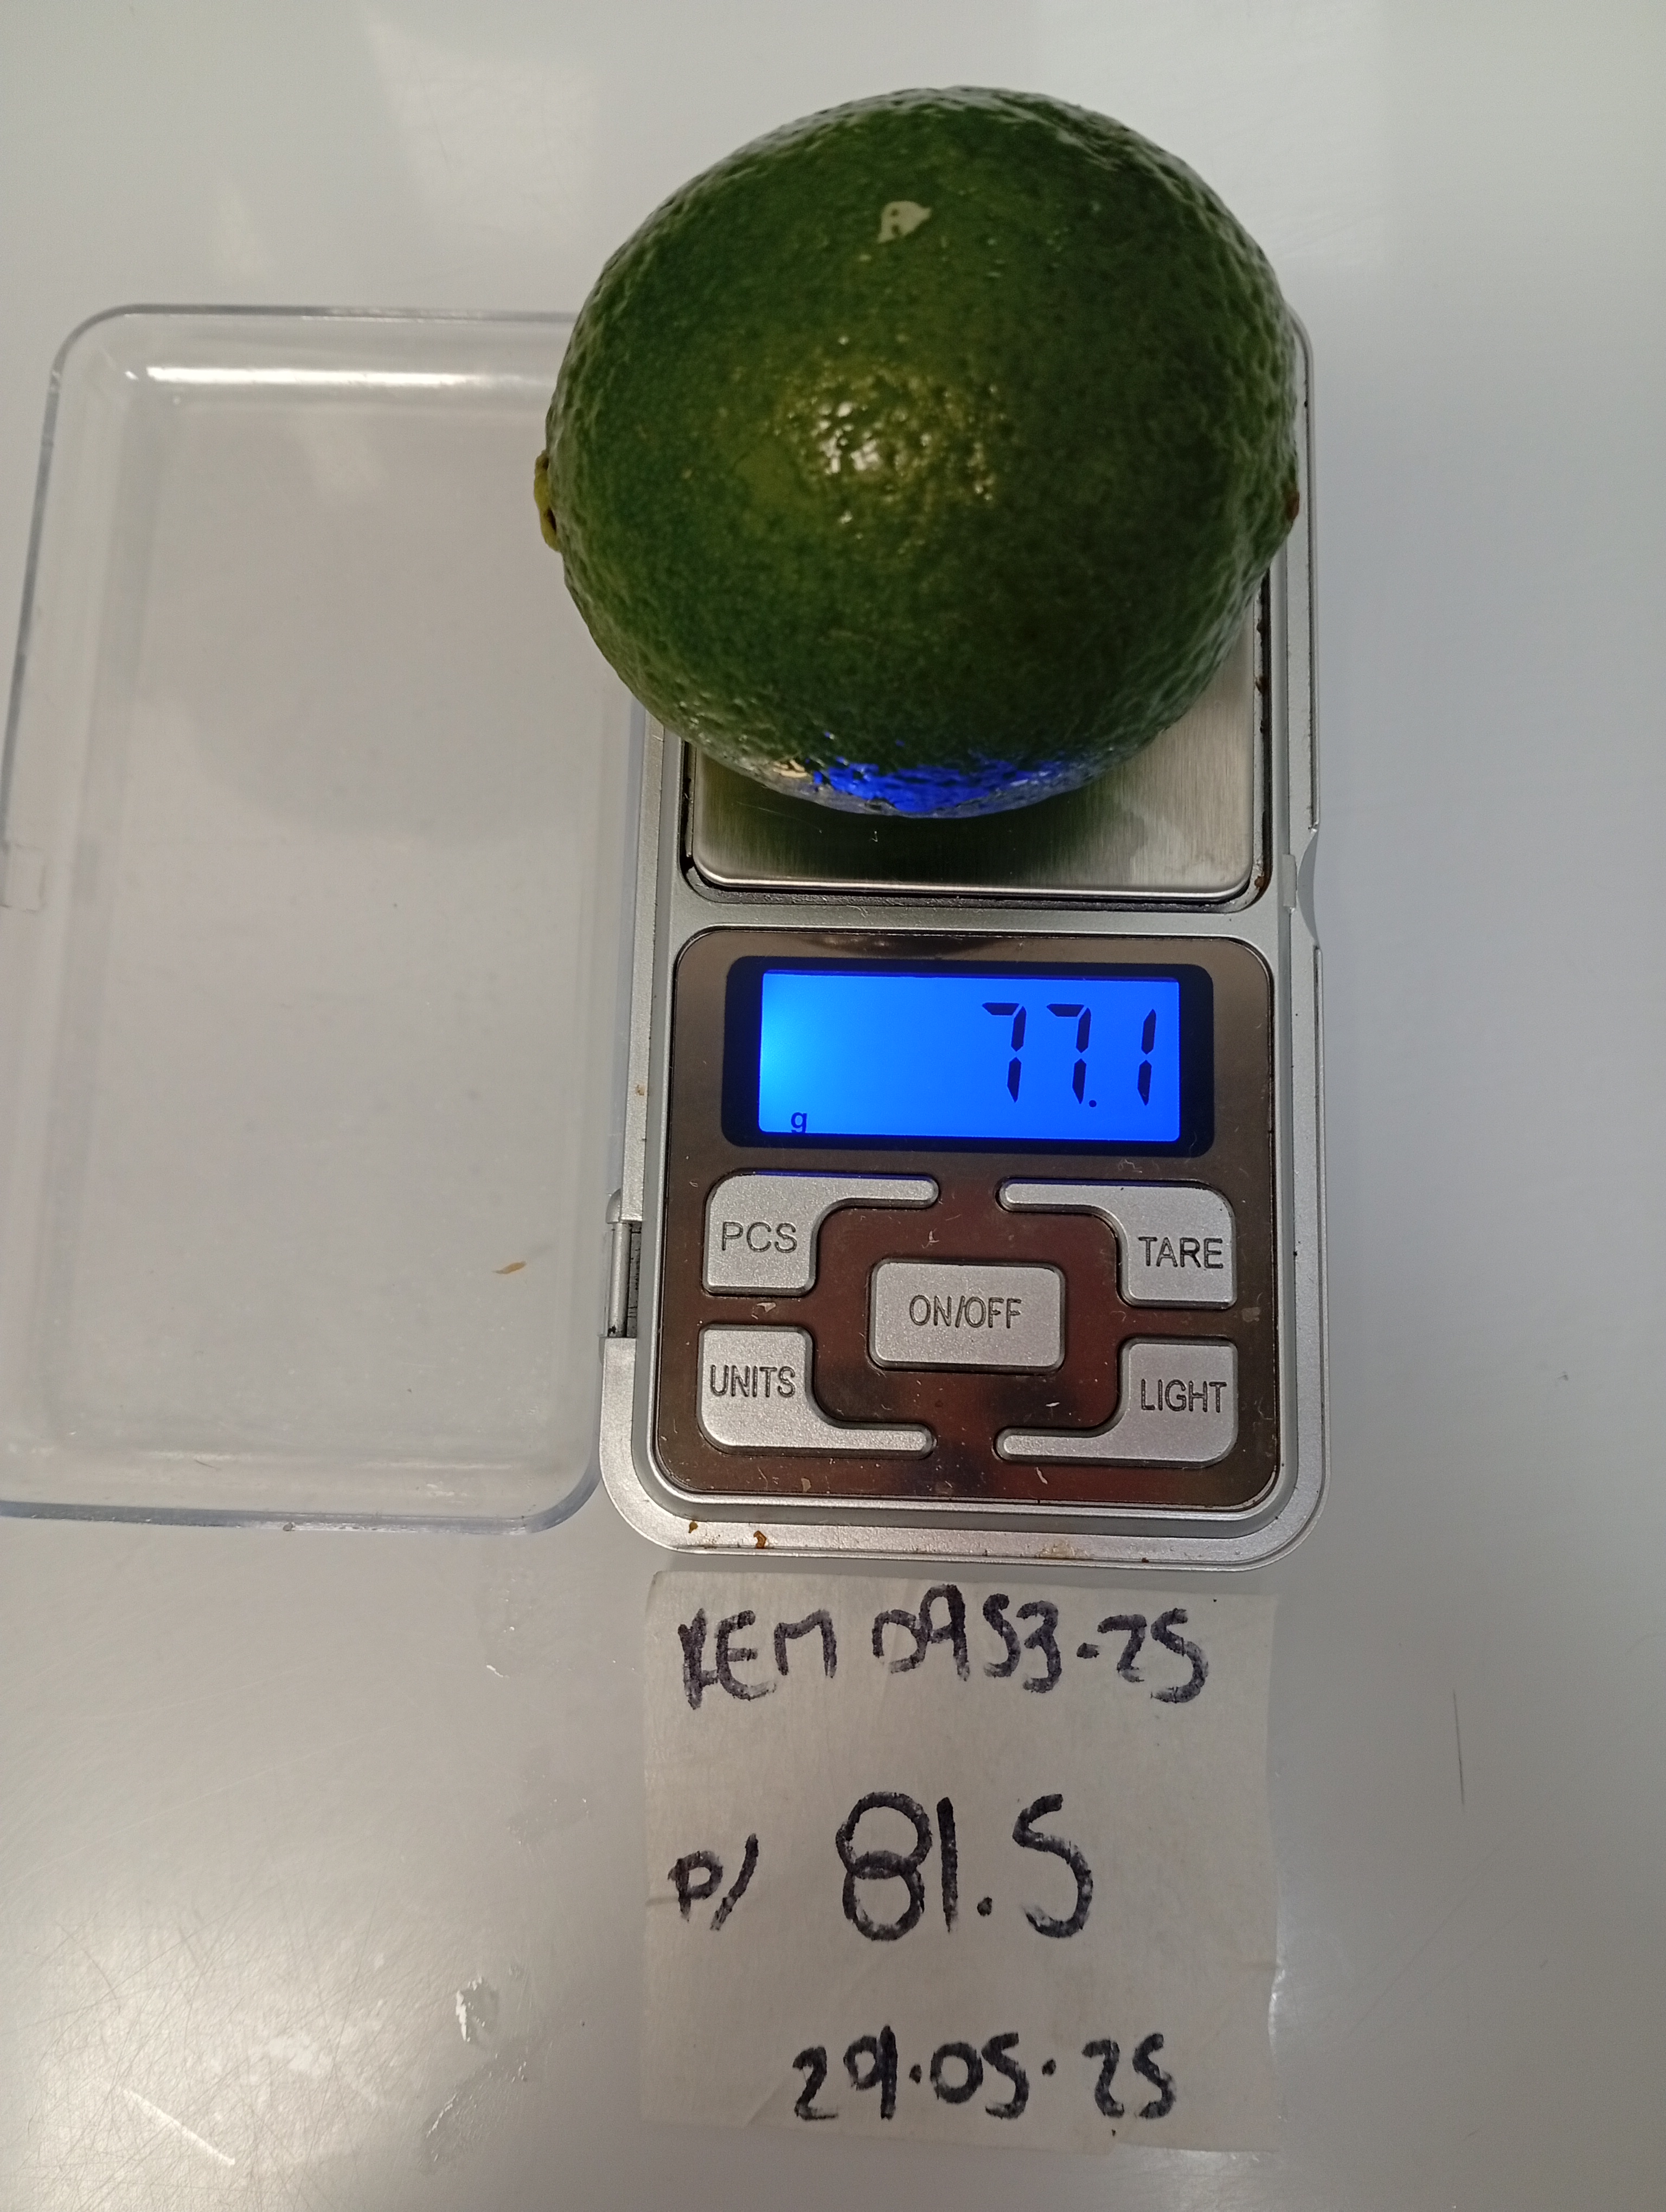 77.1
g
PCS
TARE
ON/OFF
UNITS
LIGHT
REM 0953-25
P/ 81.5
29.05.25